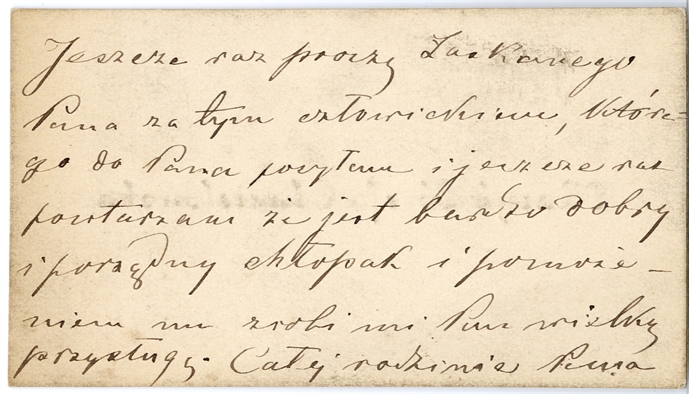 Jeszcze raz proszę Łaskawego
Pana za tym człowiekiem, któré-
go do Pana posyłam i jeszcze raz
powtarzam że jest bardzo dobry
i porządny chłopak i pomoże-
niem mu zrobi mi Pan wielką
przysługę. Całej rodzinie Pana